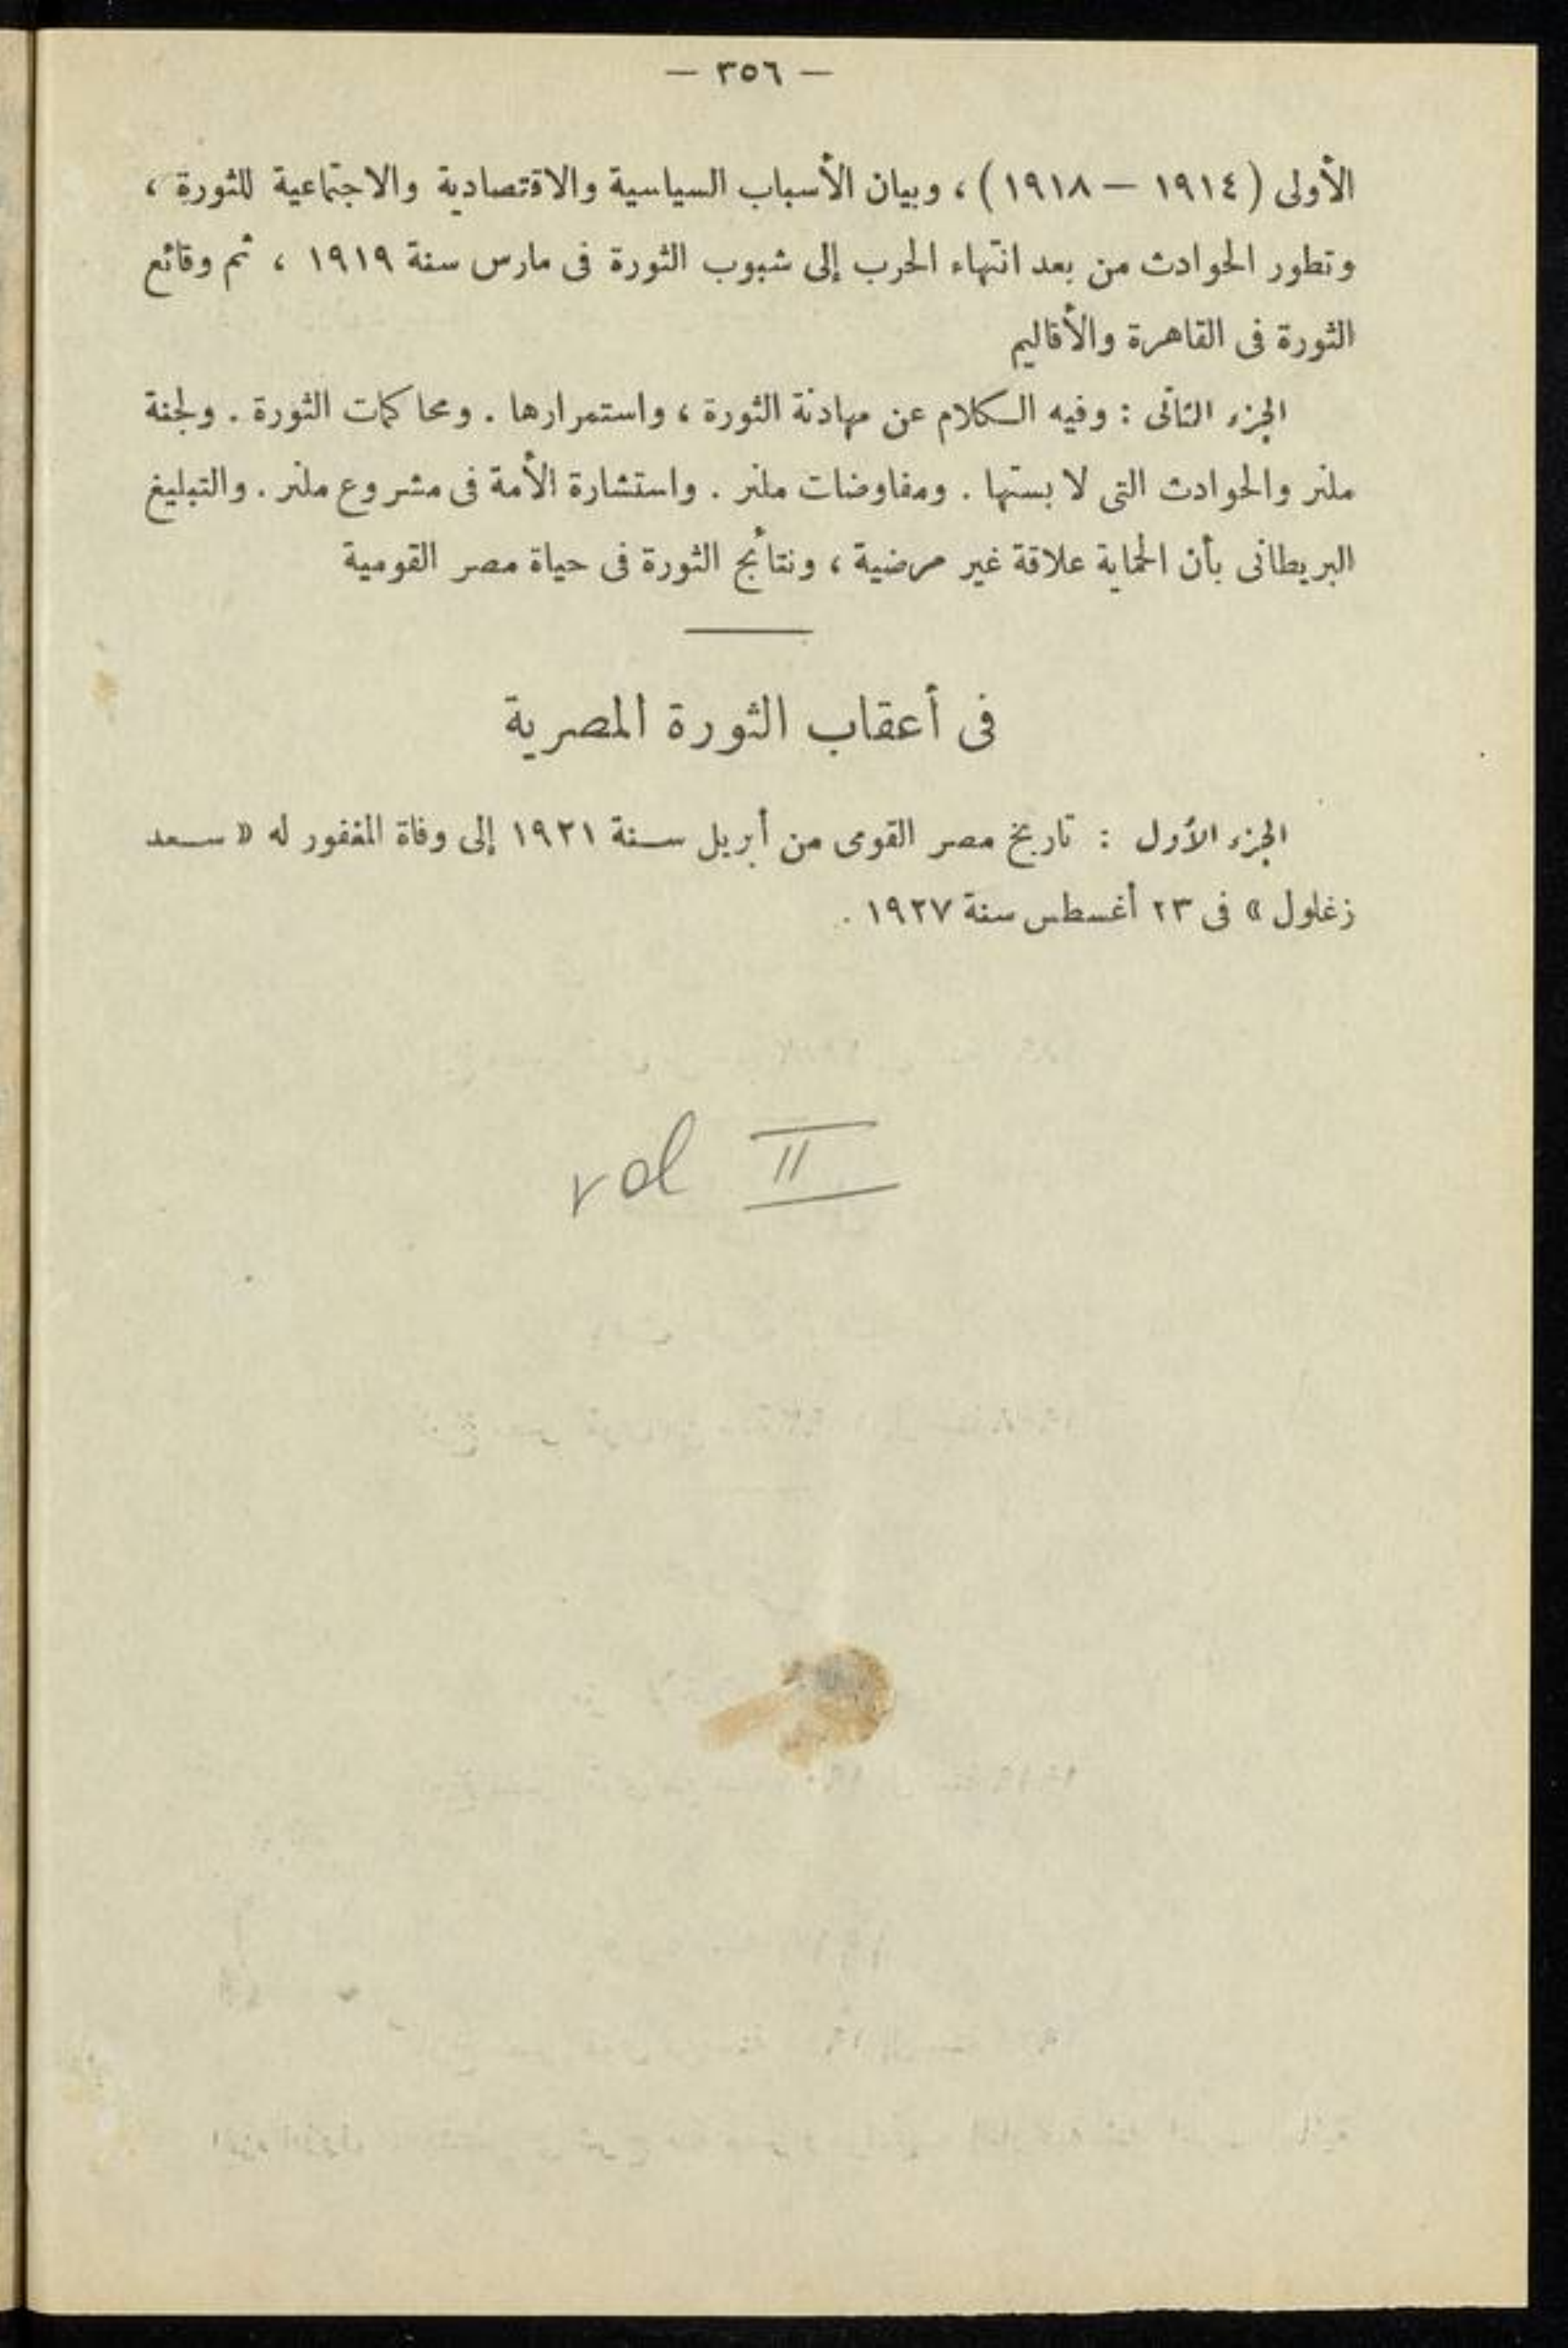 — ٣٥٦ —
الأولى (١٩١٤ — ١٩١٨) ، وبيان الأسباب السياسية والاقتصادية والاجتماعية للثورة ،
وتطور الحوادث من بعد انتهاء الحرب إلى شبوب الثورة فى مارس سنة ١٩١٩ ، ثم وقائع
الثورة فى القاهرة والأقاليم
الجزء الثانى : وفيه الكلام عن مهادنة الثورة ، واستمرارها . ومحاكمات الثورة . ولجنة
ملنر والحوادث التى لابستها . ومفاوضات ملنر . واستشارة الأمة فى مشروع ملنر . والتبليغ
البريطانى بأن الحماية علاقة غير مرضية ، ونتائج الثورة فى حياة مصر القومية
فى أعقاب الثورة المصرية
الجزء الأول : تاريخ مصر القومى من أبريل سنة ١٩٢١ إلى وفاة المغفور له « سعد
زغلول » فى ٢٣ أغسطس سنة ١٩٢٧ .
vol II